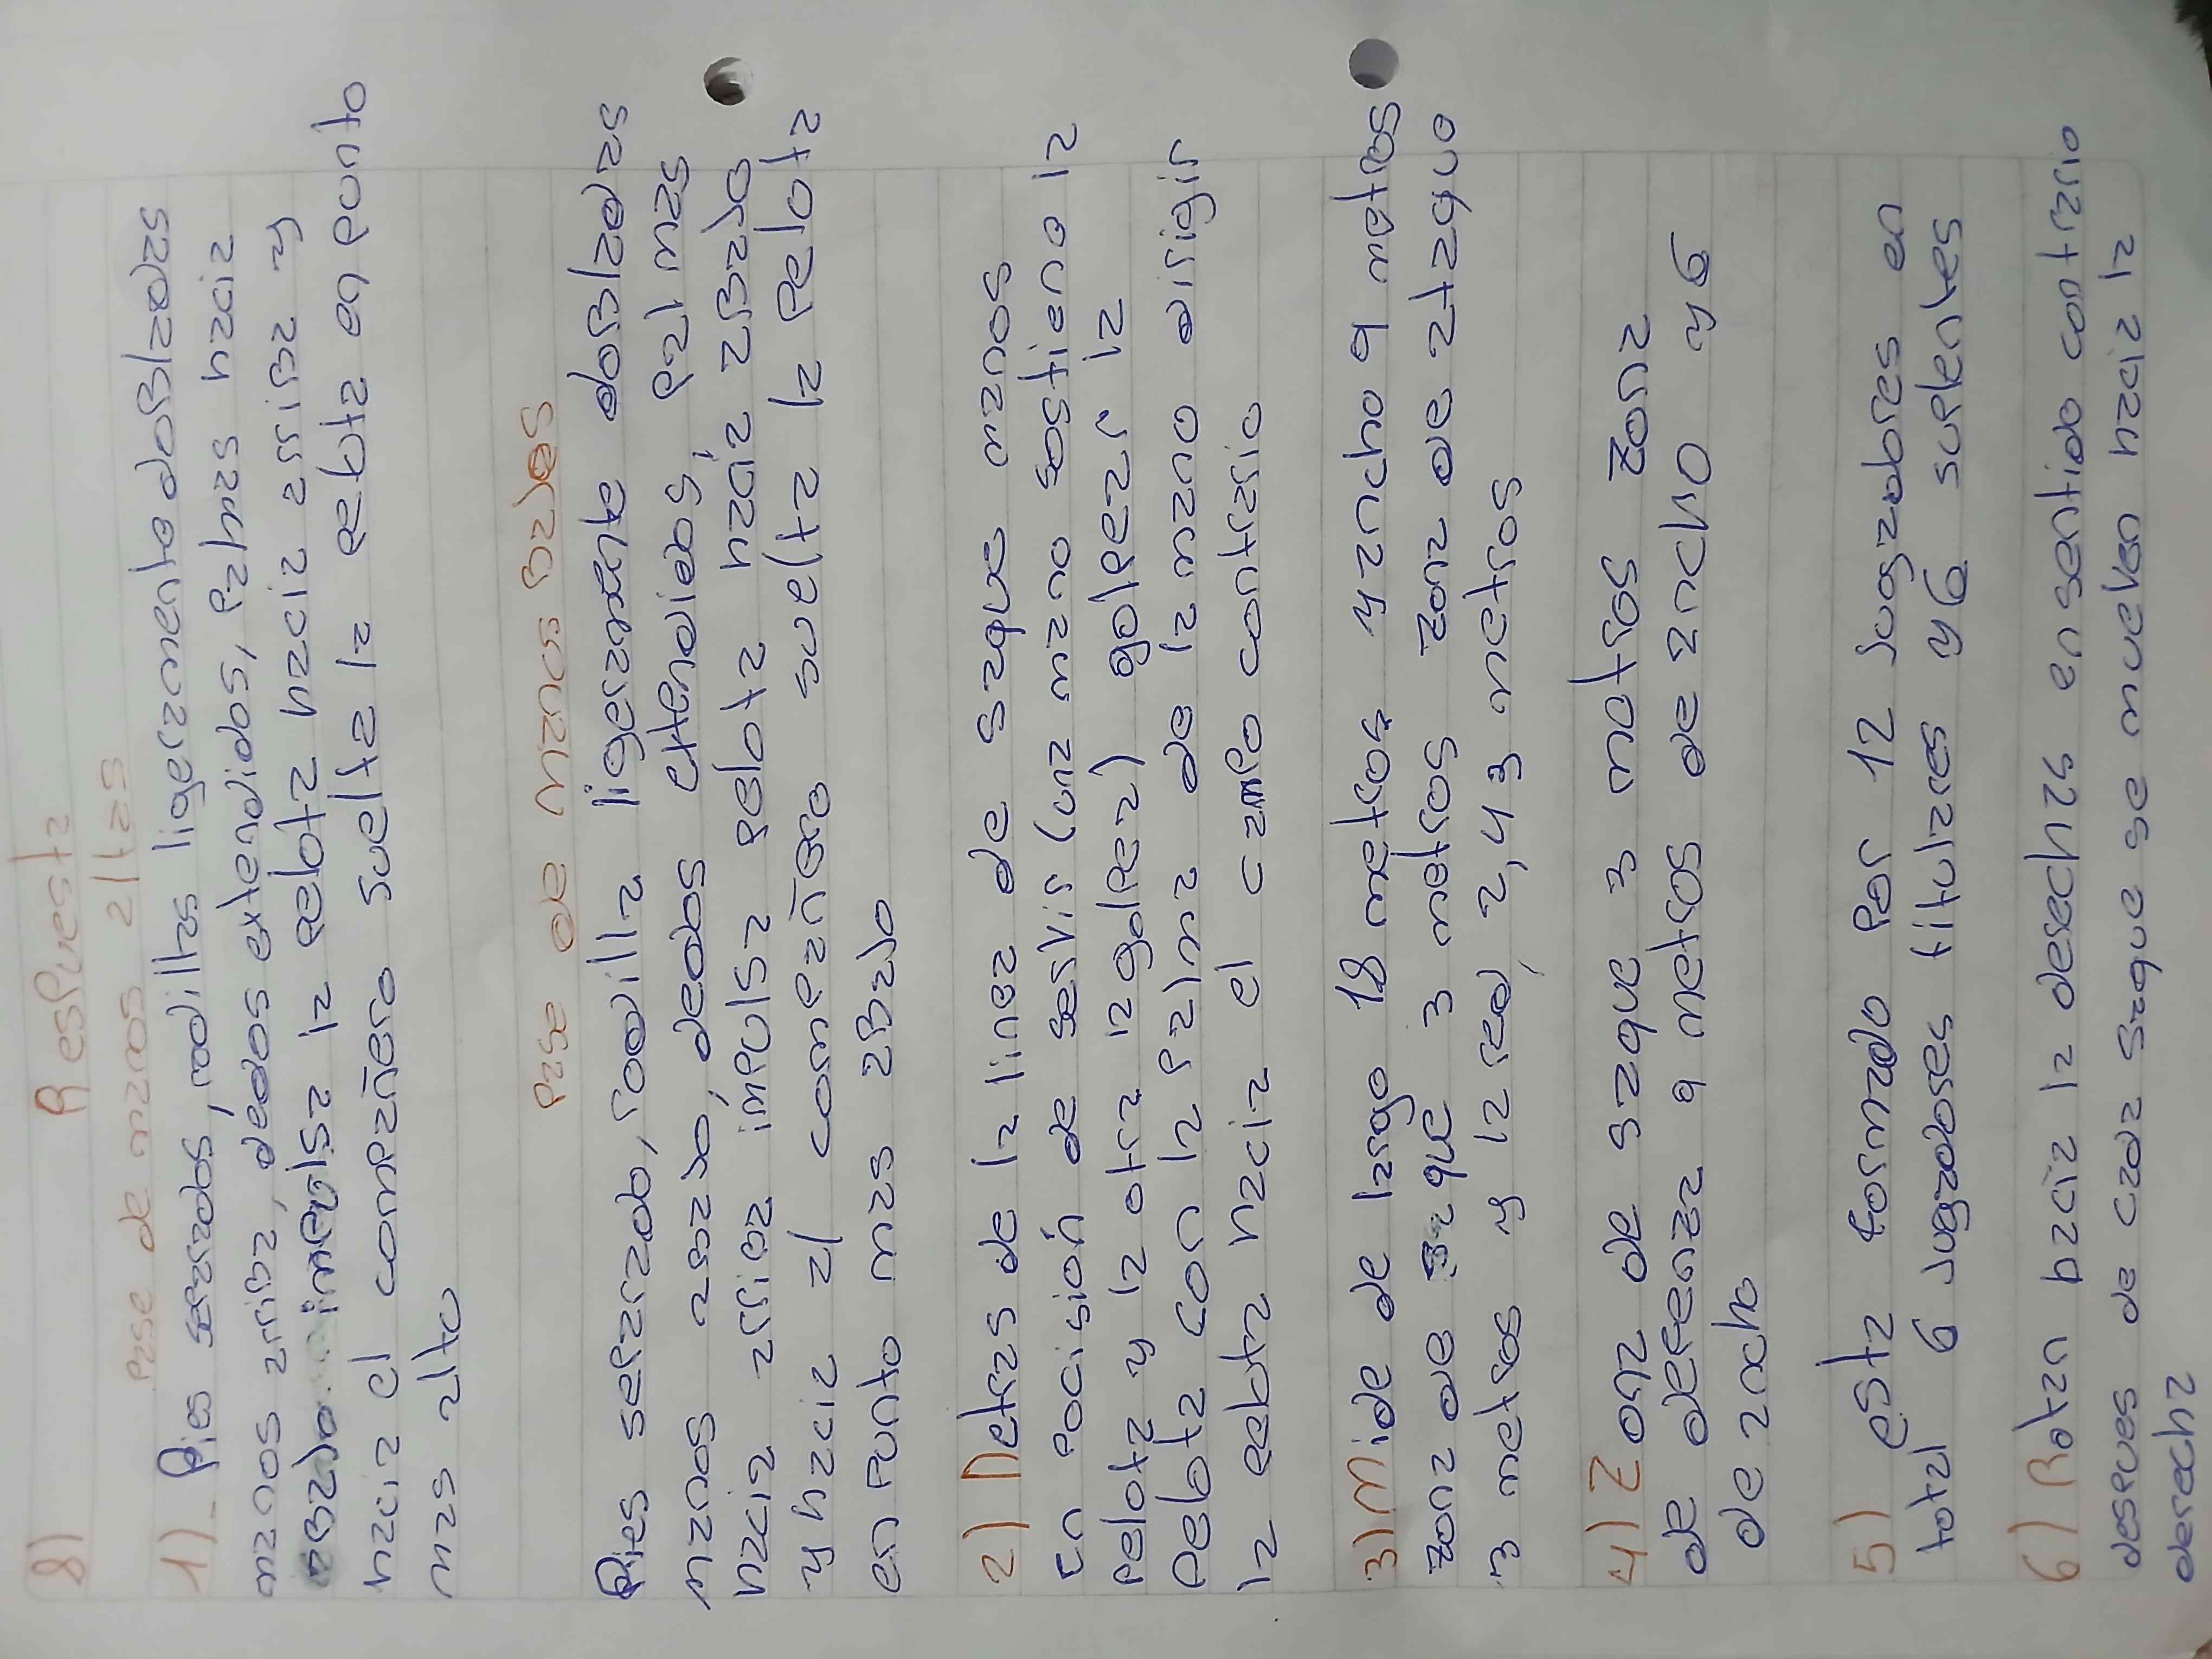 8) Respuesta
Pase de manos altas
1)- Pies serrados, rodillas ligeramente dobladas
manos arriba, dedos extendidos, palmas hacia
abajo impulsa la pelota hacia arriba y
hacia el compañero suelta la pelota en punto
mas alto
Pase de manos bajas
Pies serrado, rodilla ligeramente dobladas
manos abajo, dedos extendidos, palmas
hacia arriba impulsa pelota hacia abajo
y hacia al compañero suelta la pelota
en punto mas abajo
2) Detras de la linea de saque manos
en pocisión de servir (una mano sostiene la
pelota y la otra la golpea) golpear la
pelota con la palma de la mano dirigir
la pelota hacia el campo contrario
3) Mide de largo 18 metros y ancho 9 metros
zona de saque 3 metros zona de ataque
3 metros y la red 2,43 metros
4) Zona de saque 3 metros zona
de defensa 9 metros de ancho y 6
de ancho
5) esta formado por 12 jugadores en
total 6 jugadores titulares y 6 suplentes
6) Rotan hacia la derecha en sentido contrario
despues de cada saque se mueven hacia la
derecha